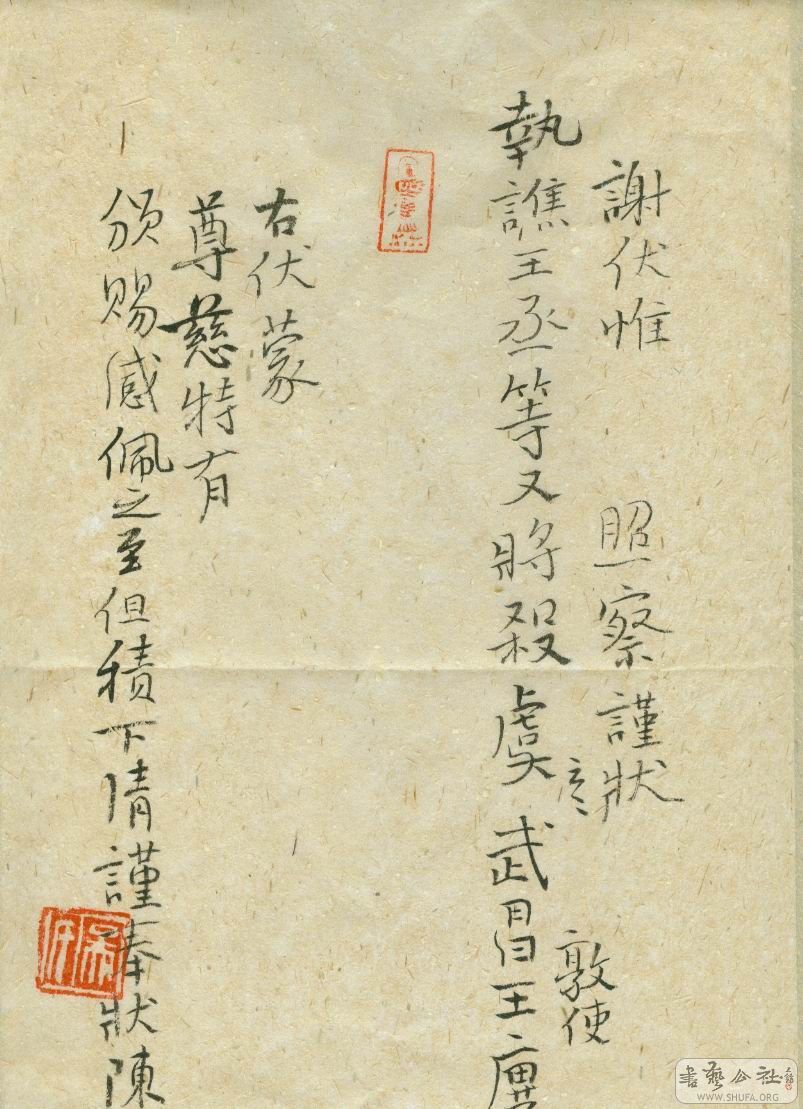 謝伏惟 照察謹狀
執譙王丞等又將殺虞武昌王廙
敦使
右伏蒙
尊慈特有
頒賜感佩之至但積下情謹奉狀陳
書藝公社
WWW.SHUFA.ORG